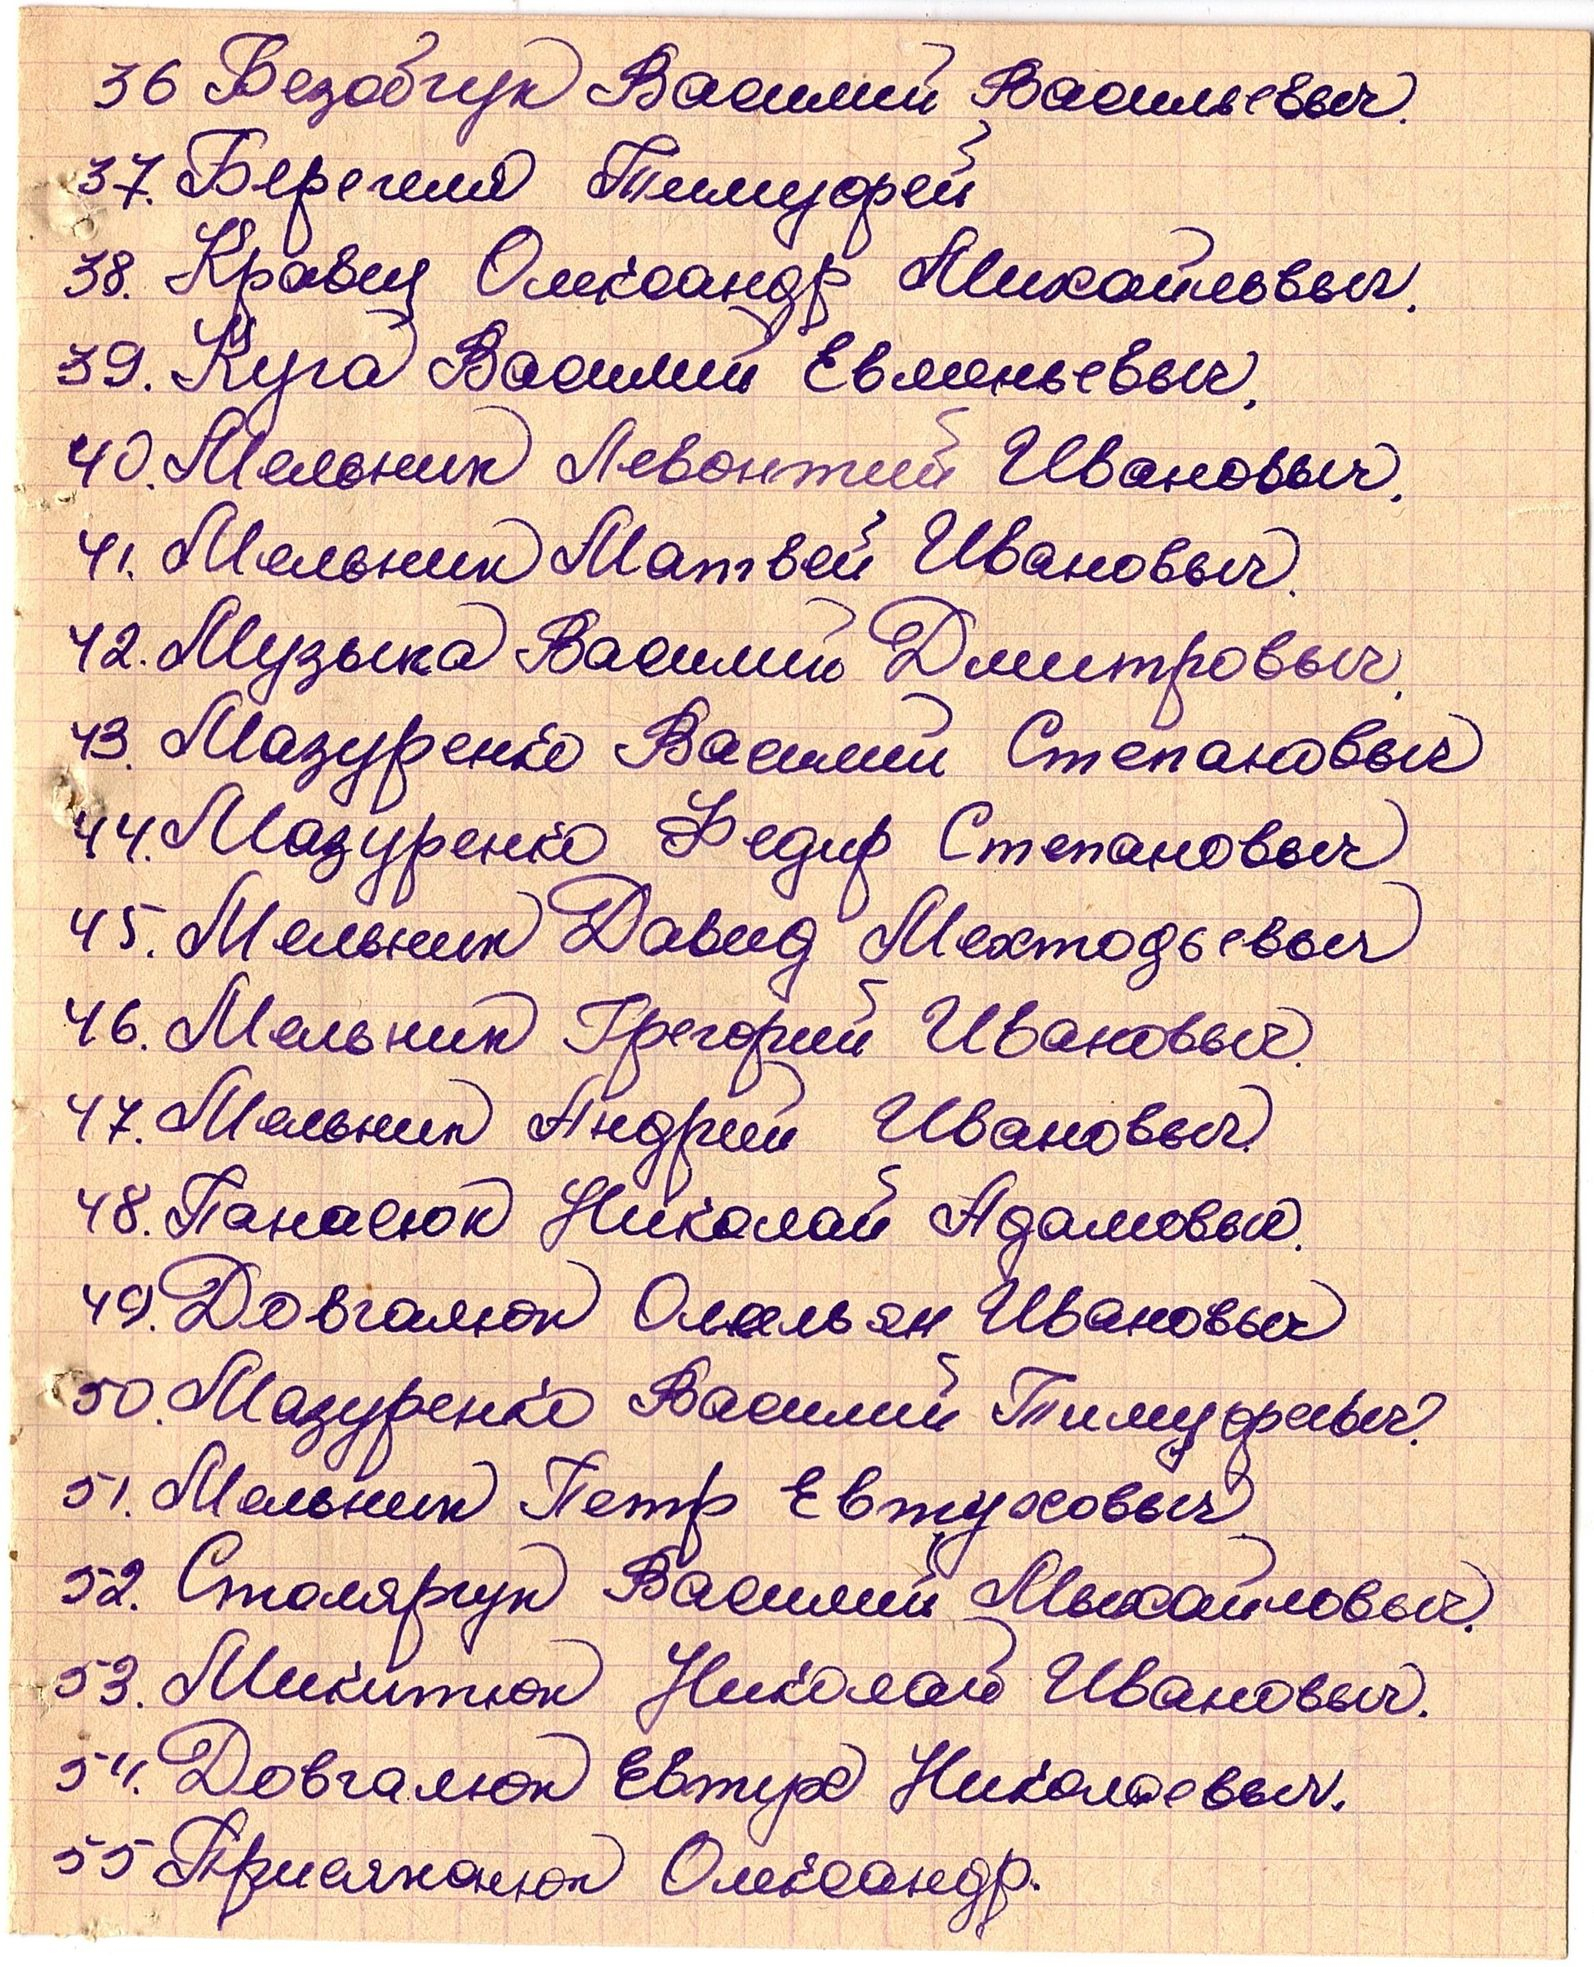 36 Безобчук Василий Васильевыч.
37. Берегеля Тимуфей
38. Кравец Олександр Михайльвыч.
39. Куга Василий Евменьевыч.
40. Мельник Левонтий Ивановыч.
41. Мельник Матвей Ивановыч.
42. Музыка Василий Дмитровыч.
43. Мазуренко Василий Степановыч
44. Мазуренко Федир Степановыч
45. Мельник Давид Мехтодьевыч
46. Мельник Грегорий Ивановыч.
47. Мельник Андрий Ивановыч.
48. Панасюк Николай Адамовыч.
49. Довгалюк Омельян Ивановыч
50. Мазуренко Василий Тимуфеьвыч.
51. Мельник Петр Евтуховыч
52. Столярчук Василий Мыхайловыч.
53. Микитюк Николай Ивановыч.
54. Довгалюк Евтух Николаевыч.
55 Присяжнюк Олександр.